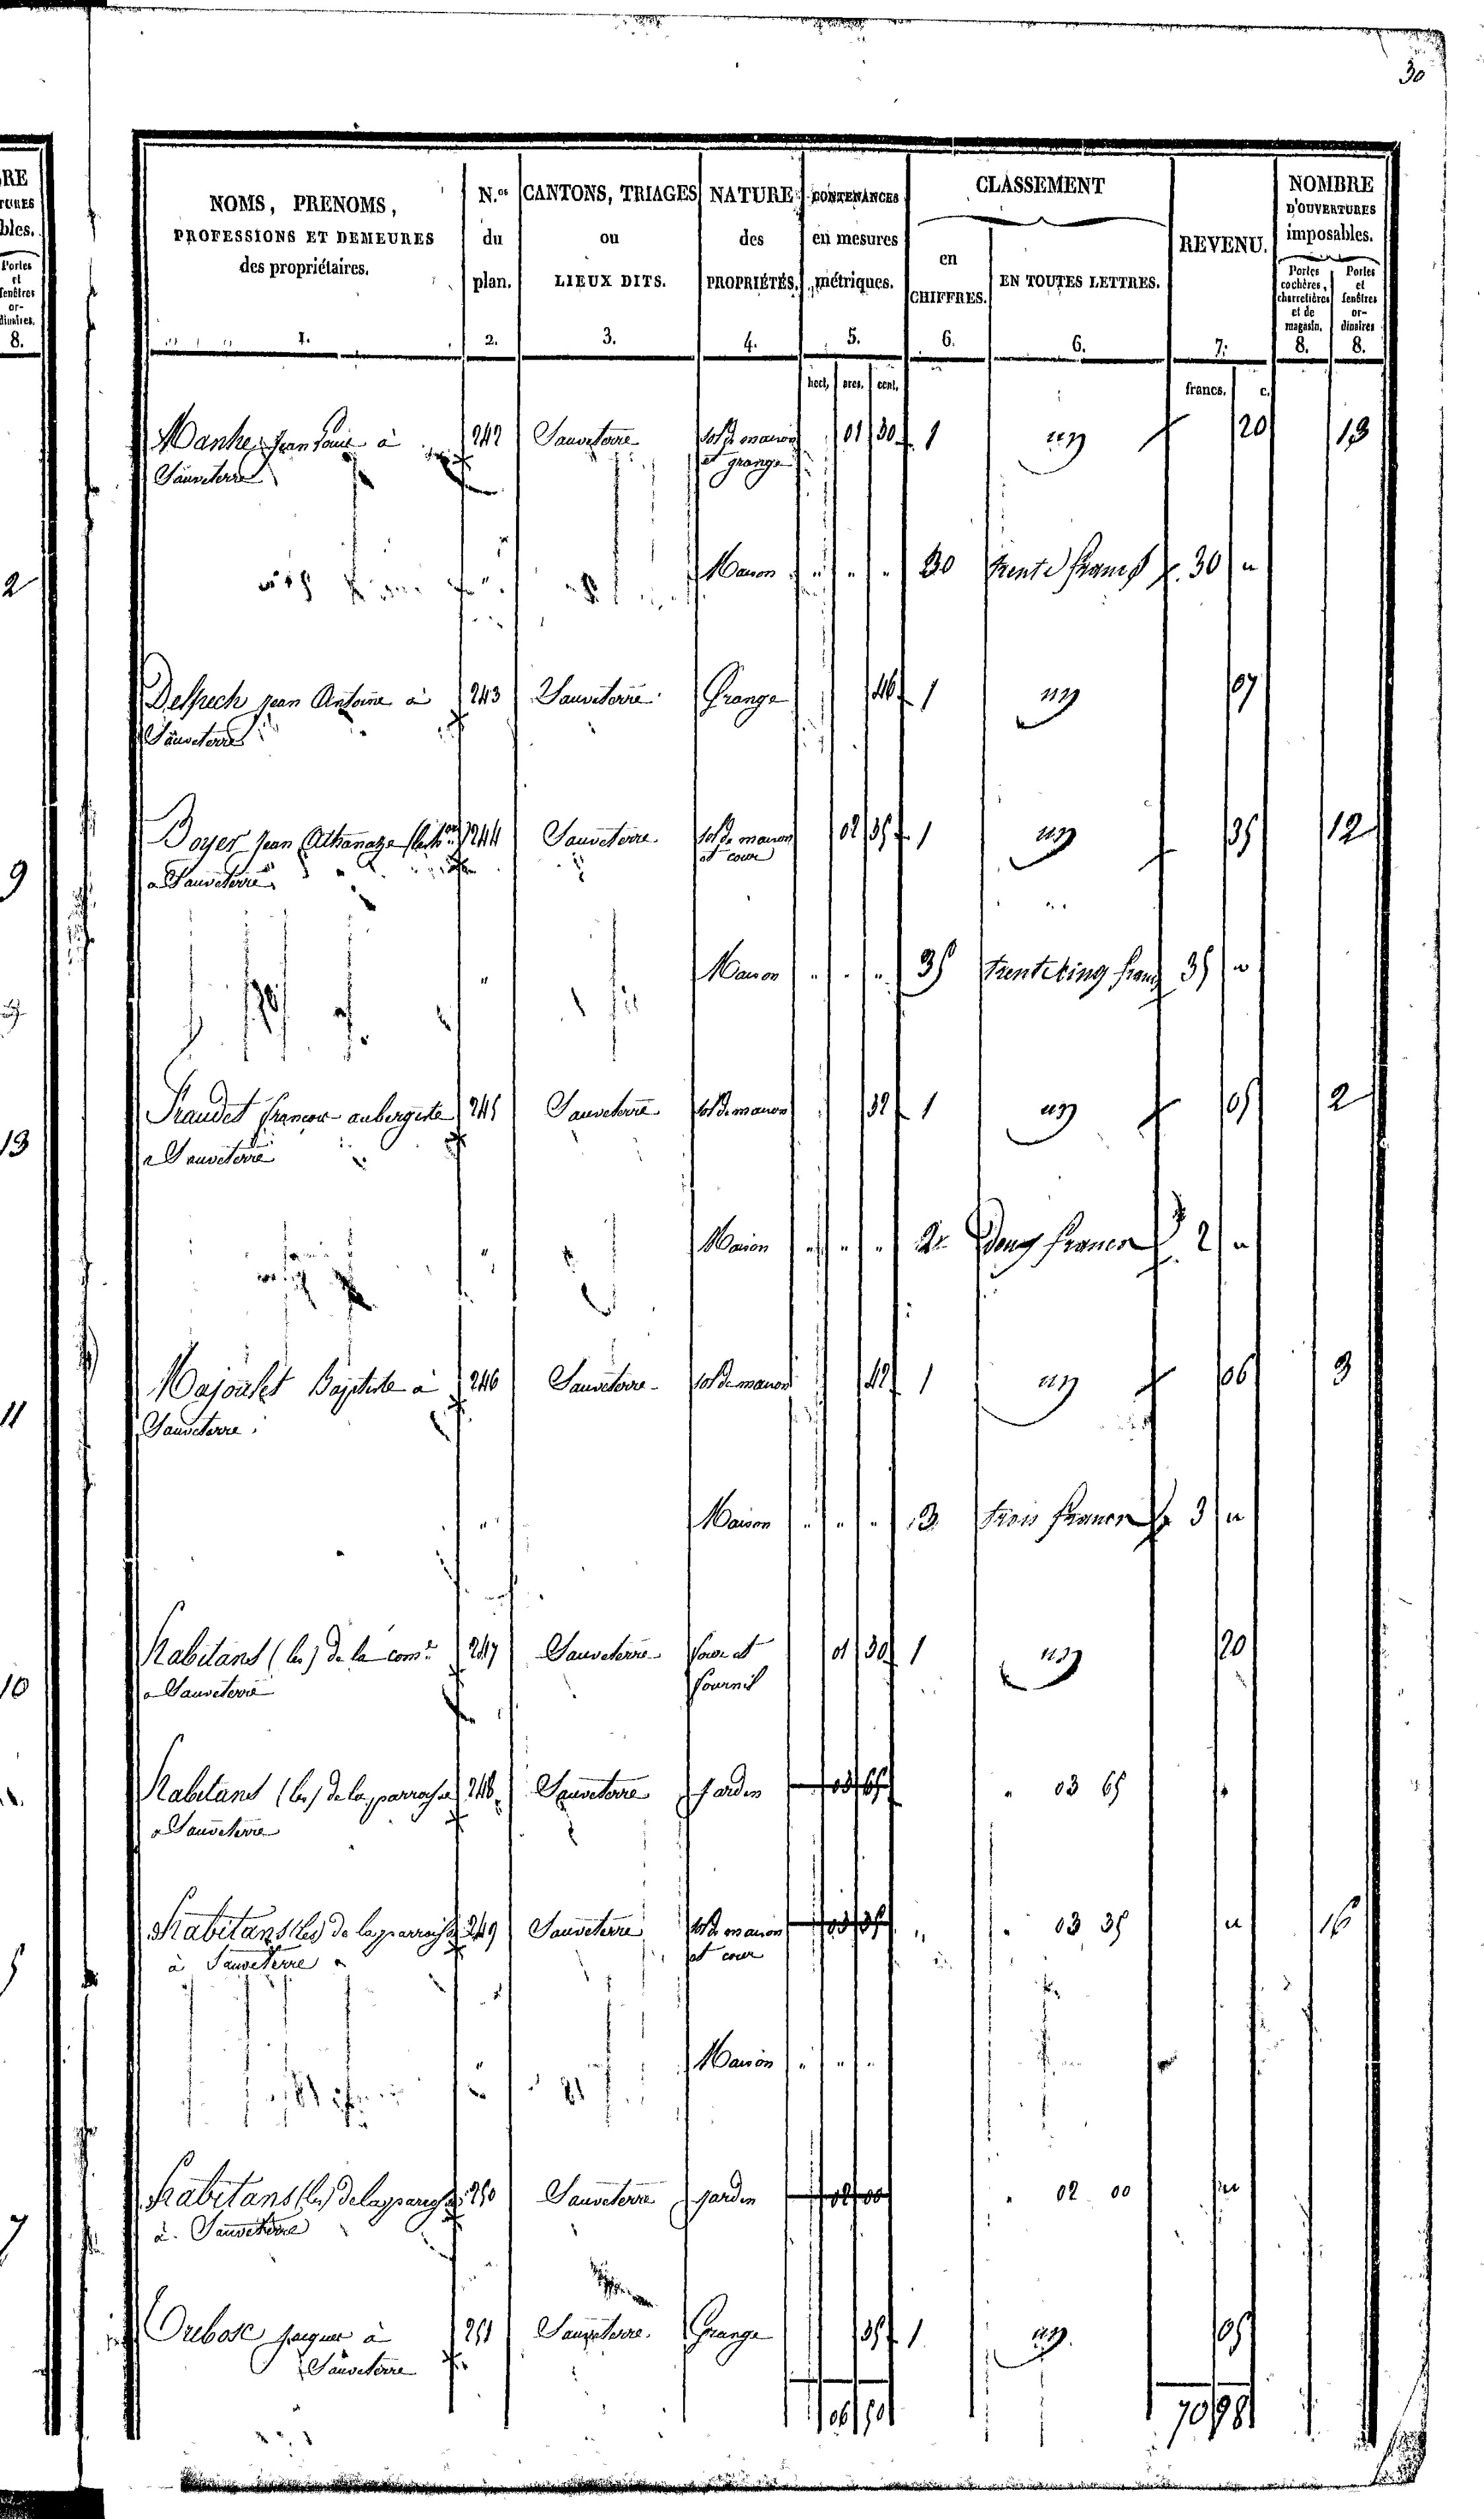 30
NOMS, PRENOMS, PROFESSIONS ET DEMEURES des propriétaires. 1.
N.os du plan. 2.
CANTONS, TRIAGES ou LIEUX DITS. 3.
NATURE des PROPRIÉTÉS. 4.
CONTENANCES en mesures métriques. 5.
CLASSEMENT
en CHIFFRES. 6.
EN TOUTES LETTRES. 6.
REVENU. 7.
NOMBRE D'OUVERTURES imposables.
Portes cochères, charretières et de magasin. 8.
Portes et fenêtres ordinaires 8.
hect. ares. cent. francs. c.
Jean à 242 Sauveterre sol de maison 01 30 1 un 20 13
Sauveterre et grange
Maison " " " 30 trente francs 30 "
Delpech Jean Antoine à 243 Sauveterre Grange 46 1 un 07
Sauveterre
Boyer Jean Athanaze 244 Sauveterre sol de maison 02 35 1 un 35 12
a Sauveterre et cour
" Maison " " " 35 trente cinq francs 35 "
françois aubergiste 245 Sauveterre sol de maison 32 1 un 05 2
a Sauveterre
" Maison " " " 2 Deux francs 2 "
Baptiste à 246 Sauveterre sol de maison 42 1 un 06 3
Sauveterre
" Maison " " " 3 trois francs 3 "
habitans (les) de la come 247 Sauveterre four et 01 30 1 un 20
a Sauveterre fournil
habitans (les) de la parroisse 248 Sauveterre jardin 03 65 " 03 65
a Sauveterre
habitans (les) de la parroisse 249 Sauveterre sol de maison 03 35 " " 03 35 " 16
à Sauveterre et cour
" Maison " " "
habitans (les) de la paroisse 250 Sauveterre jardin 02 00 " 02 00 "
à Sauveterre
Dubosc jacques à 251 Sauveterre Grange 35 1 un 05
Sauveterre
06 50 70 98